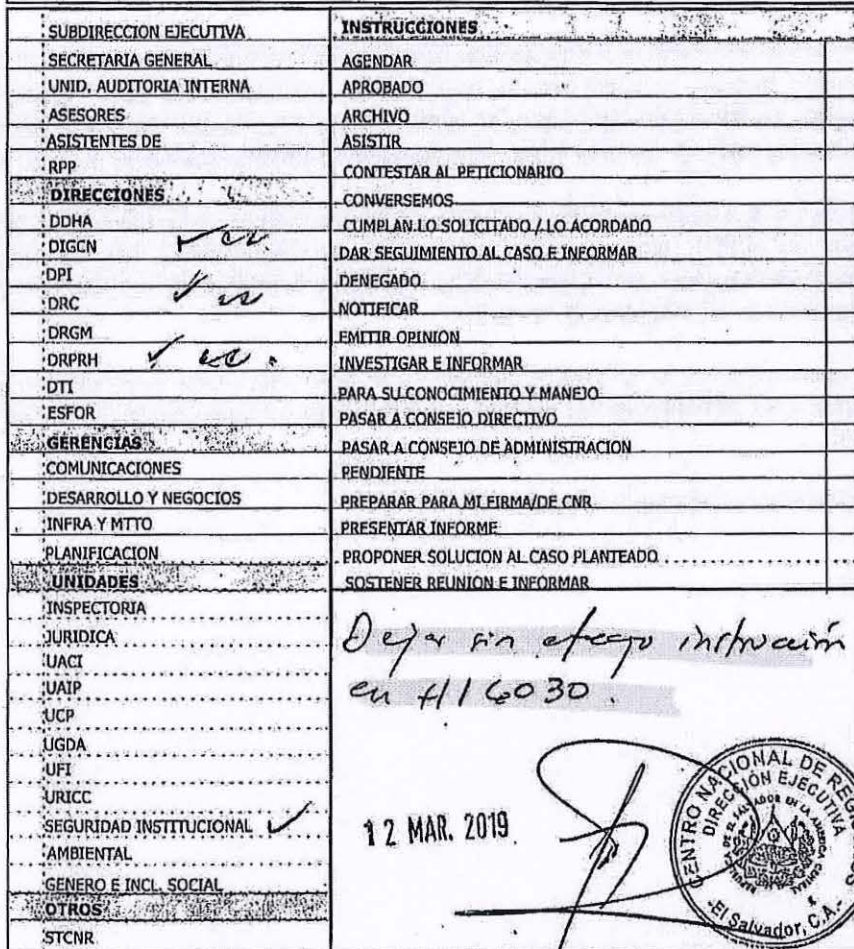 SUBDIRECCION EJECUTIVA
SECRETARIA GENERAL
UNID. AUDITORIA INTERNA
ASESORES
ASISTENTES DE
RPP
DIRECCIONES
DDHA
DIGCN cc
DPI
DRC cc
DRGM
DRPRH cc.
DTI
ESFOR
GERENCIAS
COMUNICACIONES
DESARROLLO Y NEGOCIOS
INFRA Y MTTO
PLANIFICACION
UNIDADES
INSPECTORIA
JURIDICA
UACI
UAIP
UCP
UGDA
UFI
URICC
SEGURIDAD INSTITUCIONAL
AMBIENTAL
GENERO E INCL. SOCIAL
OTROS
STCNR
INSTRUCCIONES
AGENDAR
APROBADO
ARCHIVO
ASISTIR
CONTESTAR AL PETICIONARIO
CONVERSEMOS
CUMPLAN LO SOLICITADO / LO ACORDADO
DAR SEGUIMIENTO AL CASO E INFORMAR
DENEGADO
NOTIFICAR
EMITIR OPINION
INVESTIGAR E INFORMAR
PARA SU CONOCIMIENTO Y MANEJO
PASAR A CONSEJO DIRECTIVO
PASAR A CONSEJO DE ADMINISTRACION
PENDIENTE
PREPARAR PARA MI FIRMA/DE CNR
PRESENTAR INFORME
PROPONER SOLUCION AL CASO PLANTEADO
SOSTENER REUNION E INFORMAR
Dejar sin efecto instrucción
en H16030.
12 MAR. 2019
CENTRO NACIONAL DE
DIRECCIÓN EJECUTIVA
El Salvador, C.A.